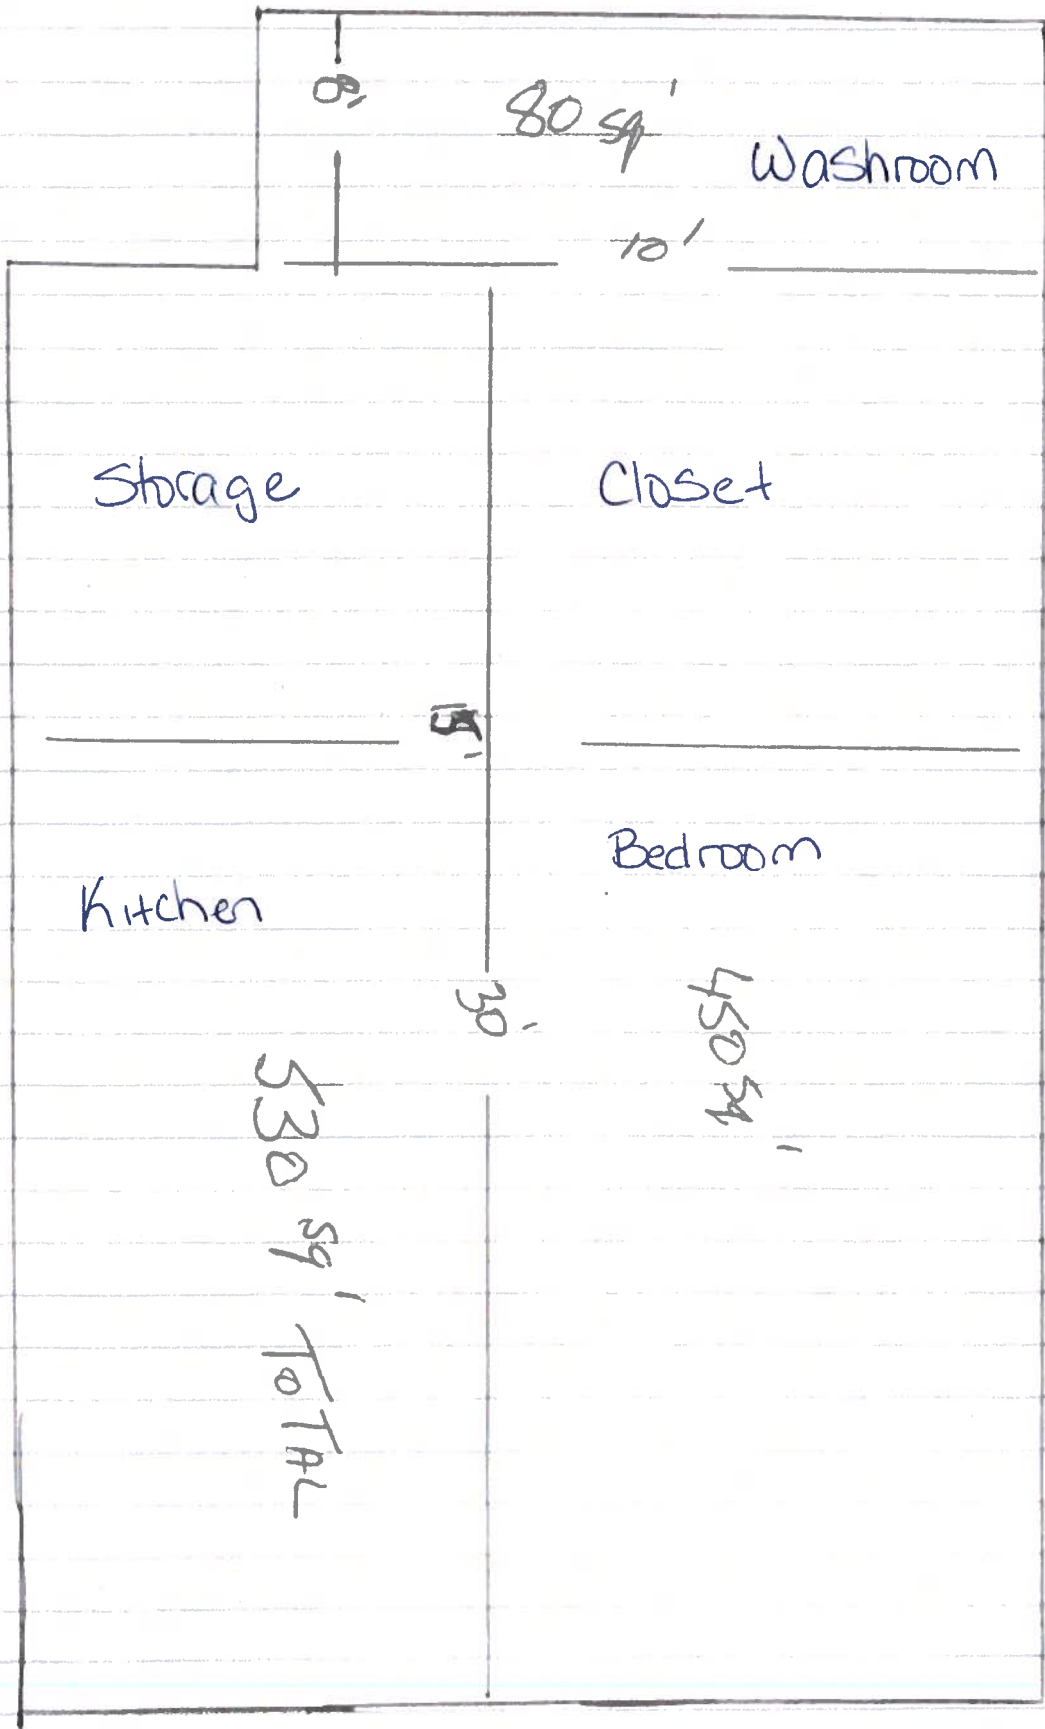 8'
80 sq'
Washroom
10'
Storage
Closet
15'
Bedroom
Kitchen
30'
450 sq'
530 sq' TOTAL